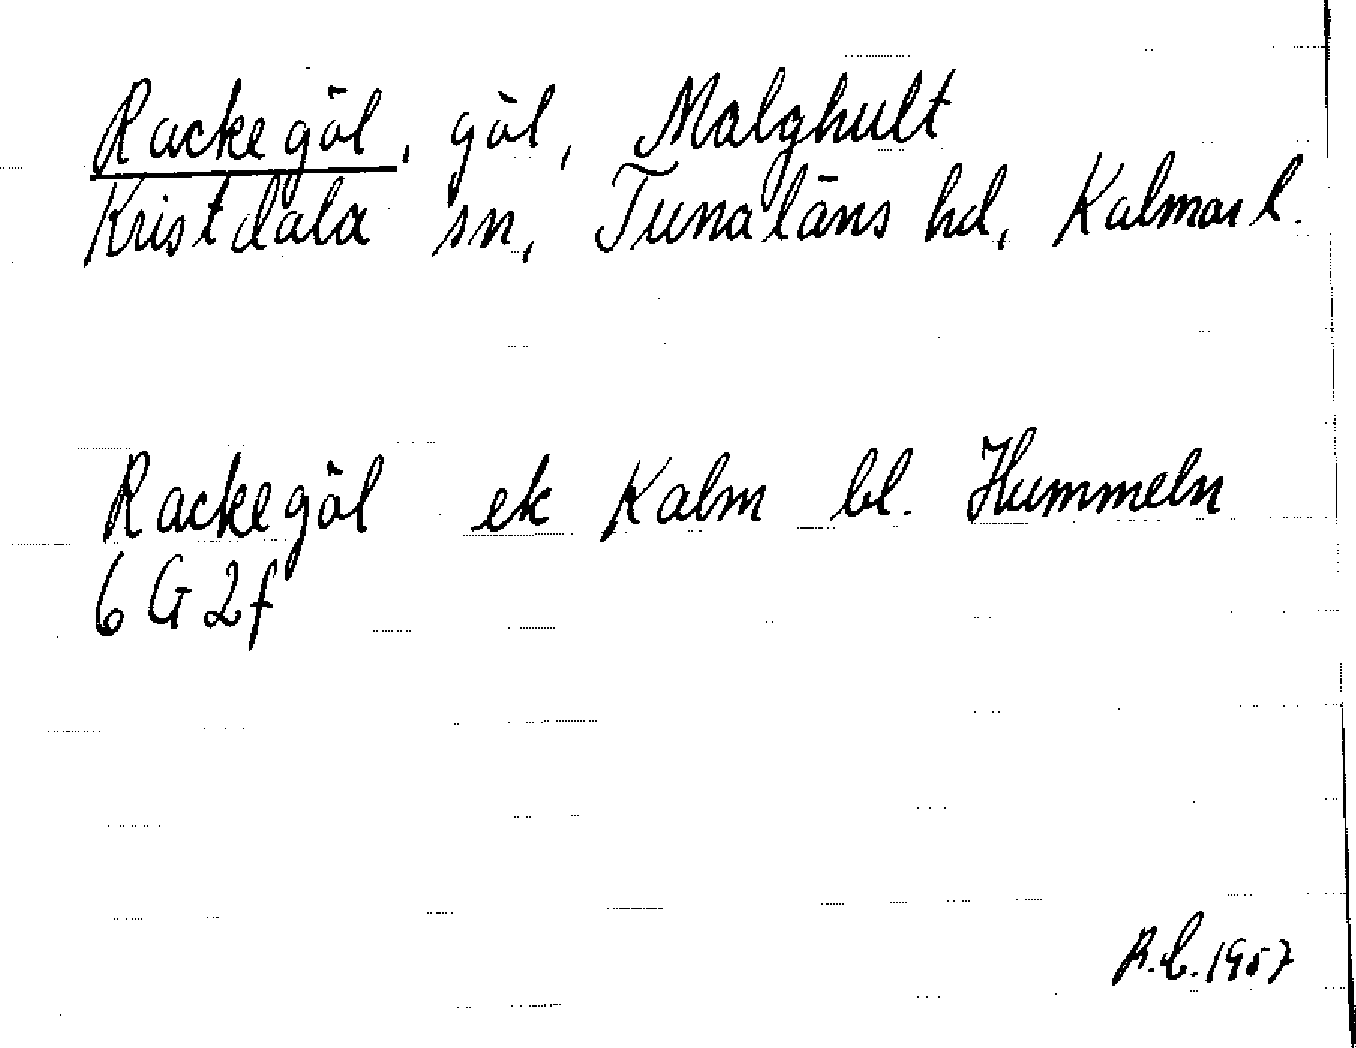 Rackegöl, göl, Malghult
Kristdala sn, Tunaläns hd, Kalmar l.
Rackegöl ek Kalm bl. Hummeln
6 G 2f
R.C. 1957